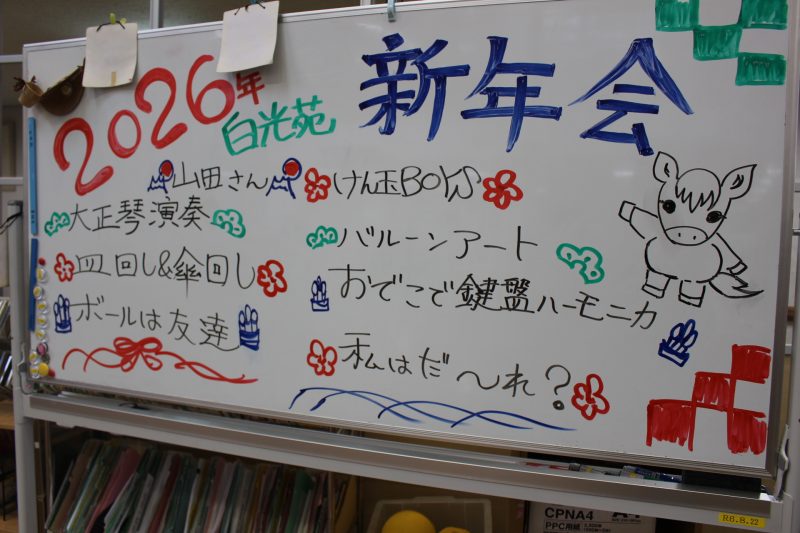 2026年 白光苑 新年会
山田さん
けん玉BOYS
大正琴演奏
バルーンアート
皿回し&傘回し
おでこで鍵盤ハーモニカ
ボールは友達
私はだ〜れ?
CPNA4
PPC用紙
R6.8.22